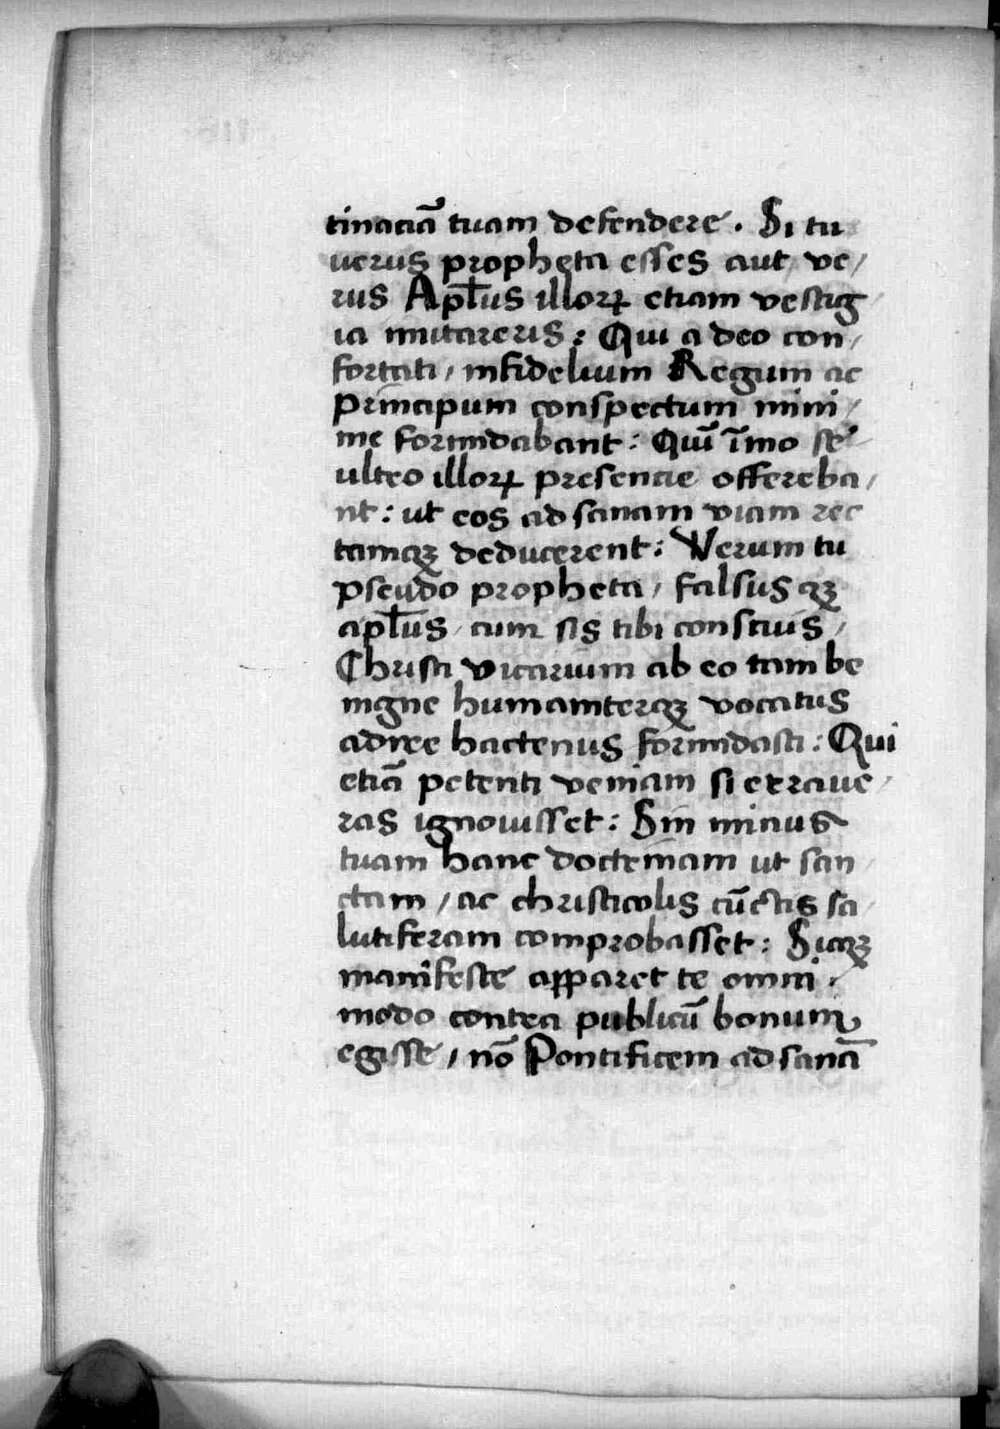 tinaciā tuam defendere. Si tu
uerus propheta esses aut ve/
rus Apl̄us illoꝝ etiam vestig/
ia imitareris: Qui a deo con/
fortati, infidelium Regum ac
principum conspectum mini/
me formidabant: Quī īmo se/
ultro illoꝝ presencie offereba/
nt: ut eos ad sanam viam rec
tamqꝫ deducerent: Verum tu
pseudo propheta, falsus qꝫ
apl̄us, cum sis tibi conscius,
Christi vicarium ab eo tam be
nigne humaniterqꝫ vocatus
adire hactenus formidasti: Qui
etiā petenti veniam si errave/
ras ignouisset: Sin minus
tuam hanc doctrinam ut san/
ctam, ac christicolis cūctis sa/
lutiferam comprobasset: Sicqꝫ
manifeste apparet te omni/
modo contra publicū bonum
egisse, nō Pontificem ad sanā